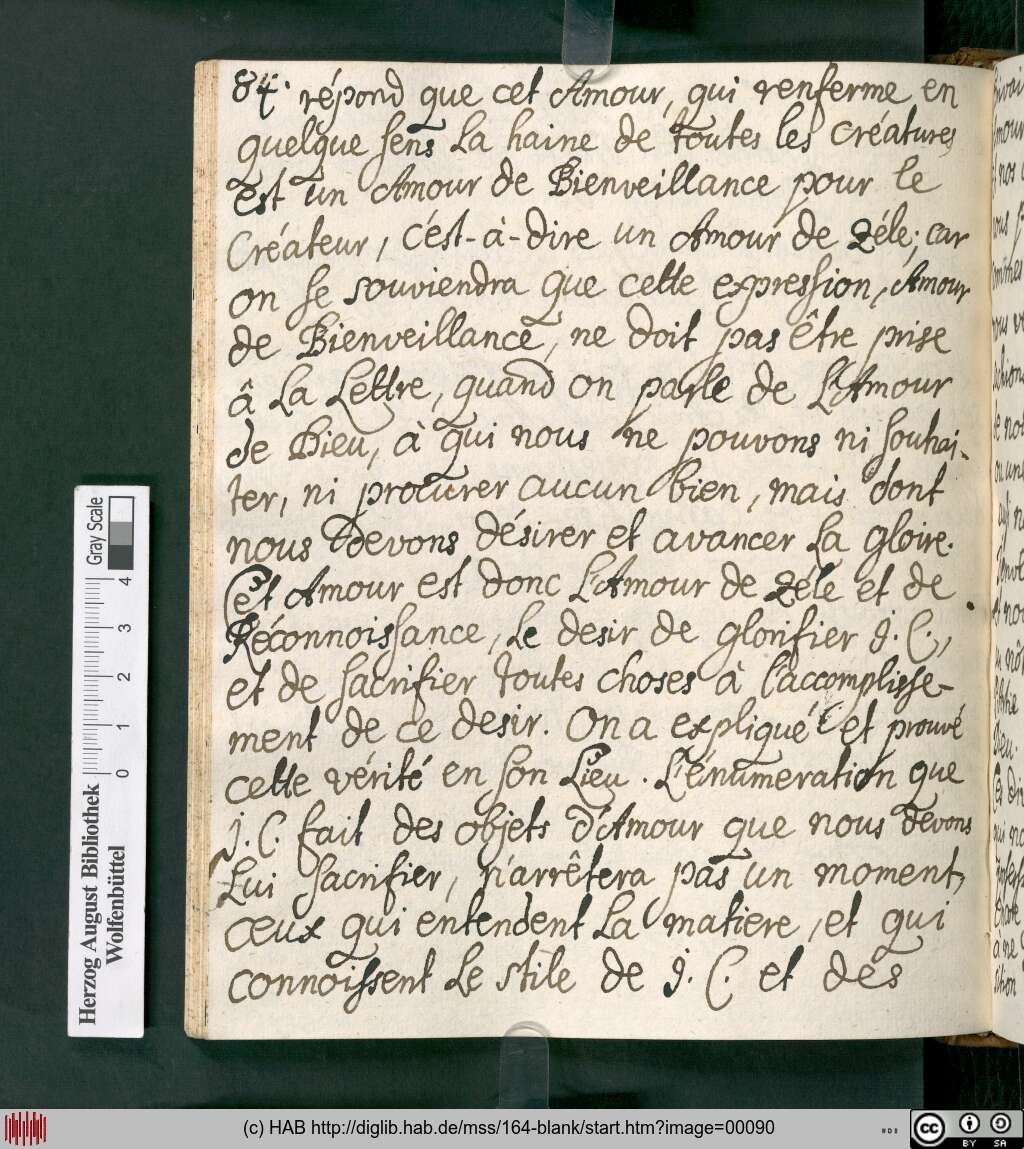 84. répond que cet Amour, qui renferme en
quelque sens la haine de toutes les Créatures,
est un Amour de Bienveillance pour le
Créateur, c'est-à-dire un Amour de Zéle; car
on se souviendra que cette expression, Amour
de Bienveillance, ne doit pas être prise
â la Lettre, quand on parle de L'Amour
de Dieu, à qui nous ne pouvons ni souhai-
ter, ni procurer aucun bien, mais dont
nous devons désirer et avancer la gloire.
Cet Amour est donc L'Amour de Zéle et de
Réconnoissance, le desir de glorifier J. C.,
et de sacrifier toutes choses à l'accomplisse-
ment de ce desir. On a expliqué et prouvé
cette vérité en son Lieu. L'énumeration que
J. C. fait des objets d'Amour que nous devons
Lui sacrifier, n'arrêtera pas un moment,
ceux qui entendent la matiere, et qui
connoissent le stile de J. C. et des
Gray Scale
0 1 2 3 4
Herzog August Bibliothek
Wolfenbüttel
(c) HAB http://diglib.hab.de/mss/164-blank/start.htm?image=00090
cc BY SA